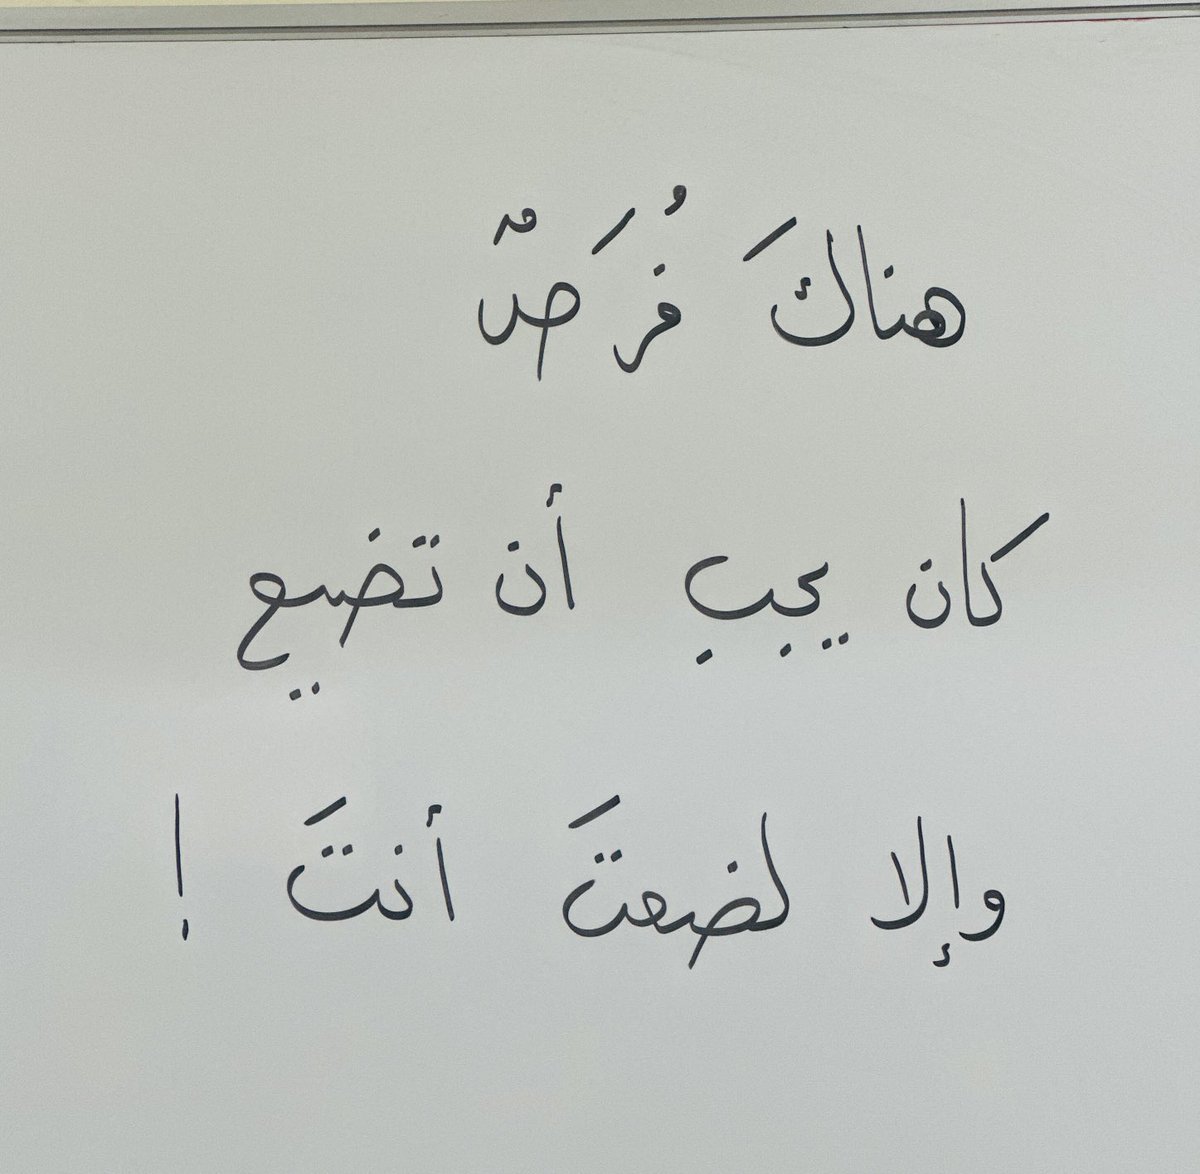 هناكَ فُرَصٌ
كان يجب أن تضيع
وإلا لضعتَ أنتَ !